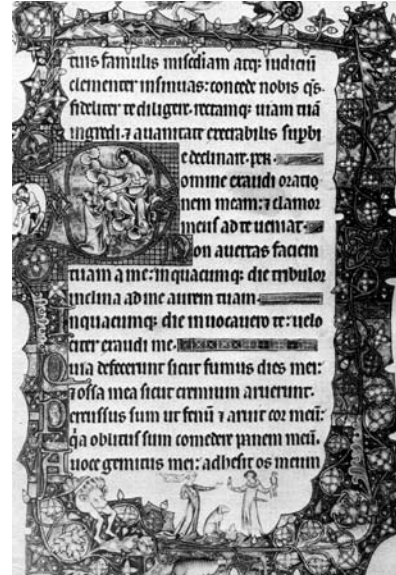 tuis famulis misediam atq; iudiciū
clementer insinuas: concede nobis q̄s.
fideliter te diligere. rectamq; uiam tuā
ingredi. ⁊ a uanitate execrabilis supbi
e declinare. per.
omine exaudi oratio
nem meam: ⁊ clamor
meus ad te ueniat.
on auertas faciem
tuam a me: in quacumq; die tribulor
inclina ad me aurem tuam.
nquacumq; die inuocauero te: uelo
citer exaudi me.
uia defecerunt sicut fumus dies mei:
⁊ ossa mea sicut cremium aruerunt.
ercussus sum ut fenū ⁊ aruit cor meū:
q̄a oblitus sum comedere panem meū.
uoce gemitus mei: adhesit os meum